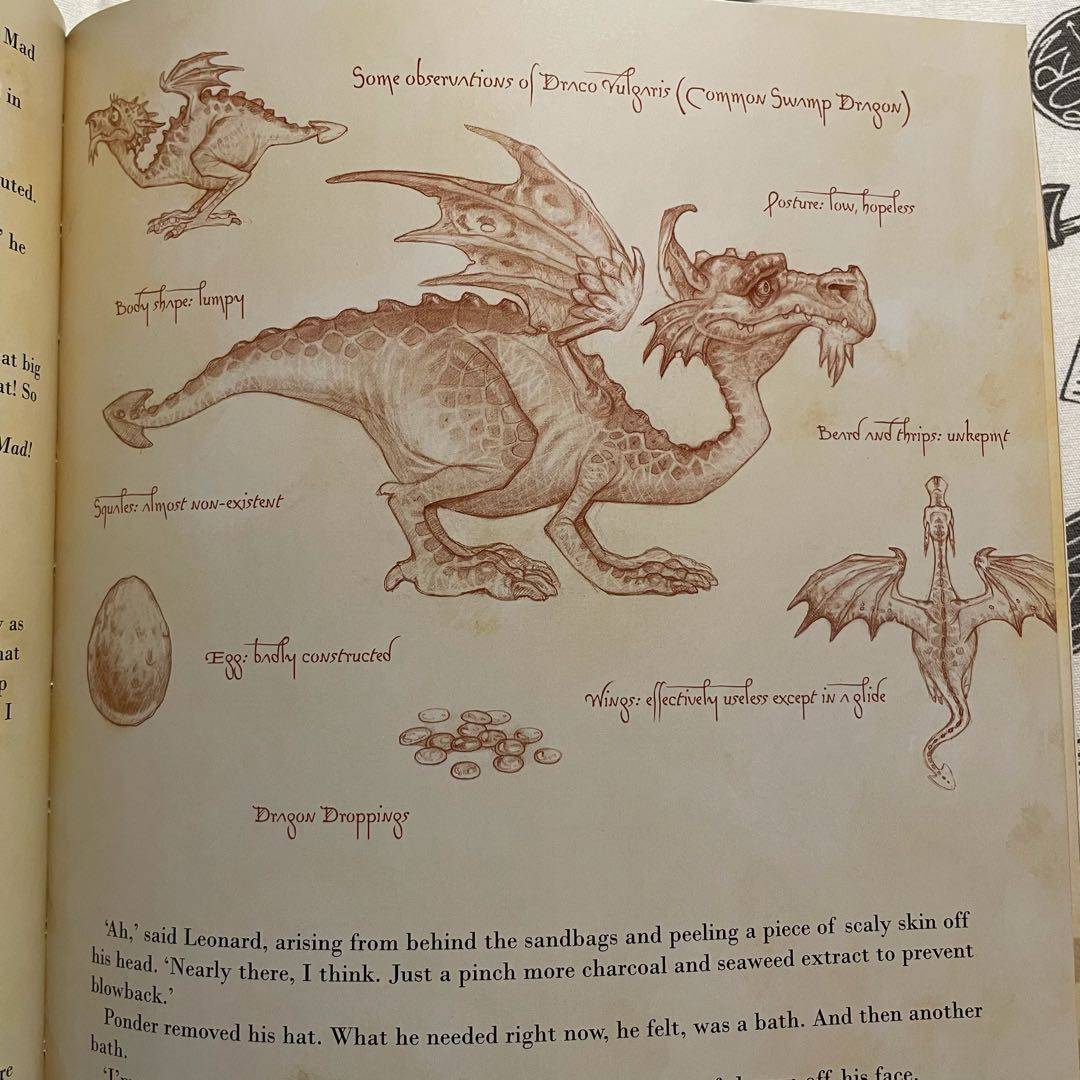 Mad
in
uted.
’ he
at big
at! So
Mad!
as
hat
p
I
re
Some observations of Draco Vulgaris (Common Swamp Dragon)
Posture: low, hopeless
Body shape: lumpy
Beard and thrips: unkepmt
Squales: almost non-existent
Egg: badly constructed
Wings: effectively useless except in a glide
Dragon Droppings
‘Ah,’ said Leonard, arising from behind the sandbags and peeling a piece of scaly skin off
his head. ‘Nearly there, I think. Just a pinch more charcoal and seaweed extract to prevent
blowback.’
Ponder removed his hat. What he needed right now, he felt, was a bath. And then another
bath.
off his face.